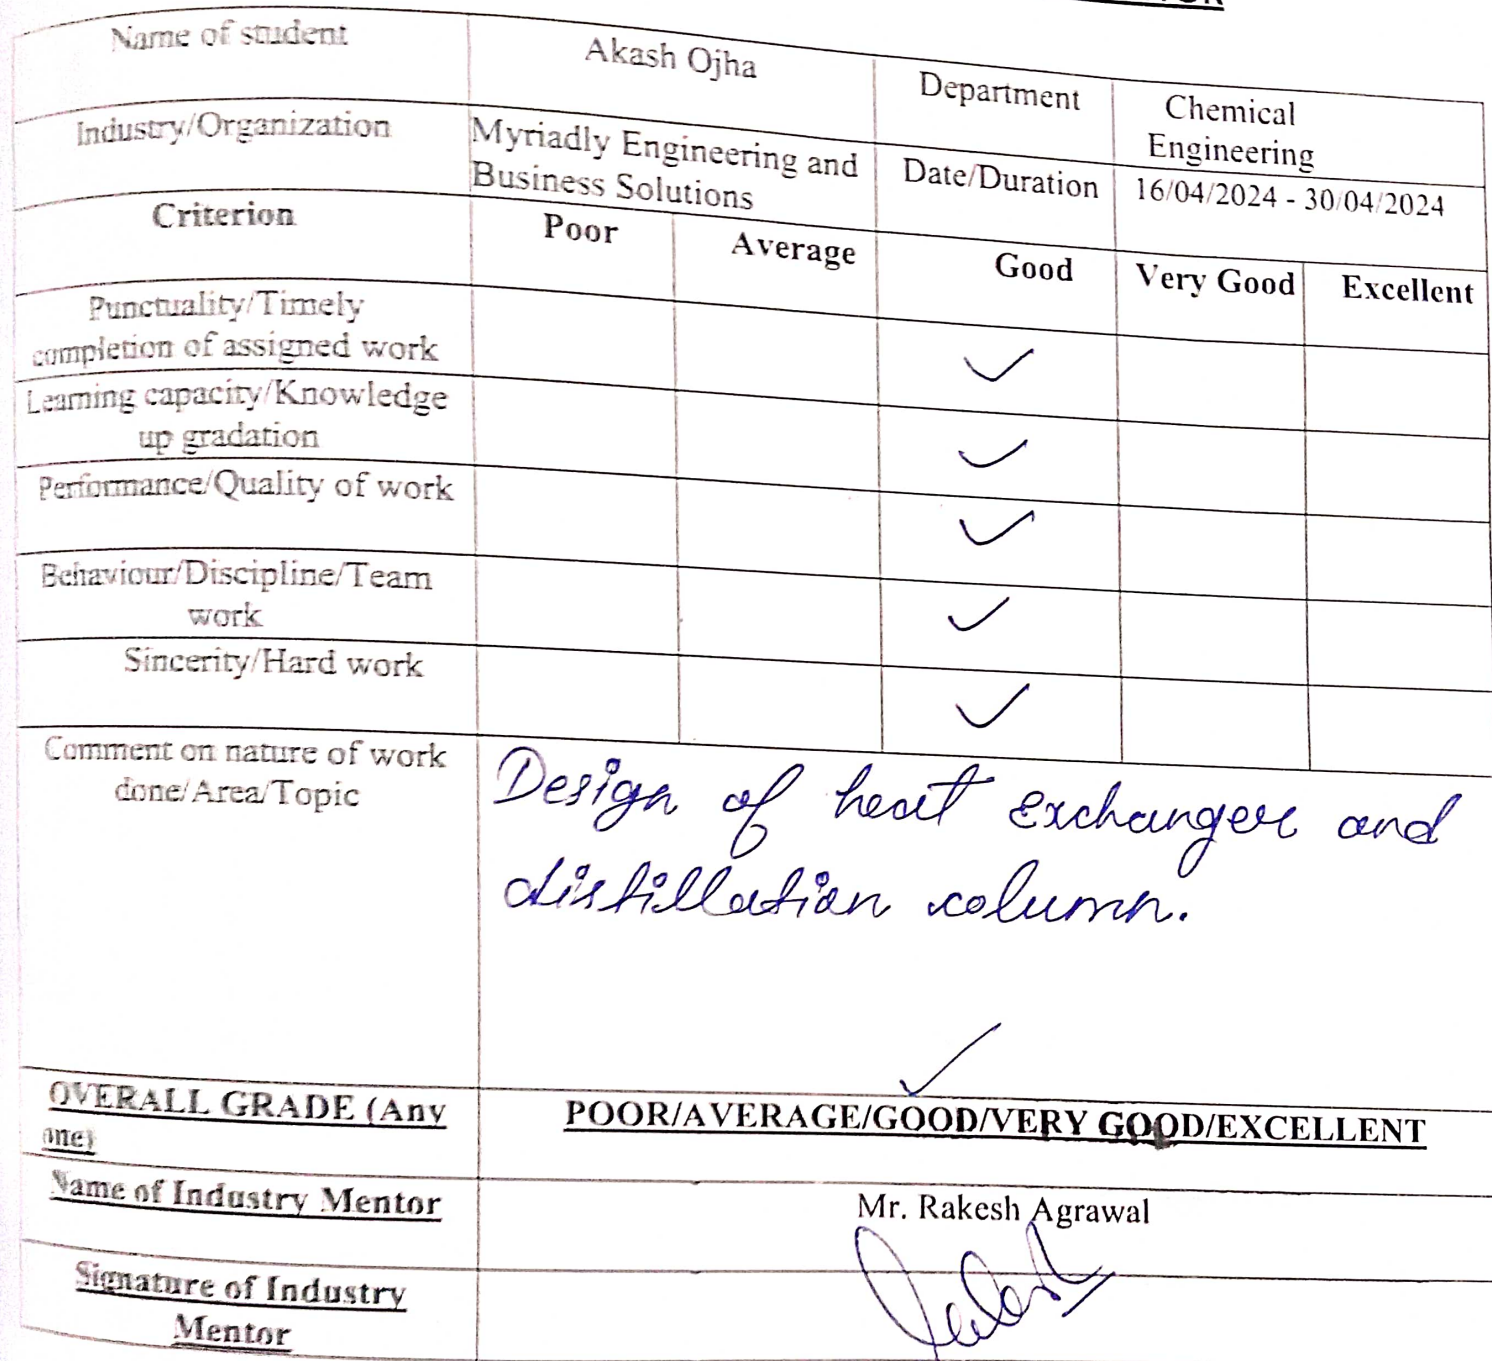 Name of student Akash Ojha Department Chemical
Engineering
Industry/Organization Myriadly Engineering and Date/Duration 16/04/2024 - 30/04/2024
Business Solutions
Criterion Poor Average Good Very Good Excellent
Punctuality/Timely
completion of assigned work ✓
Learning capacity/Knowledge
up gradation ✓
Performance/Quality of work ✓
Behaviour/Discipline/Team
work ✓
Sincerity/Hard work ✓
Comment on nature of work
done/Area/Topic
Design of heat exchanger and
distillation column.
✓
OVERALL GRADE (Any
one) POOR/AVERAGE/GOOD/VERY GOOD/EXCELLENT
Name of Industry Mentor Mr. Rakesh Agrawal
Signature of Industry
Mentor